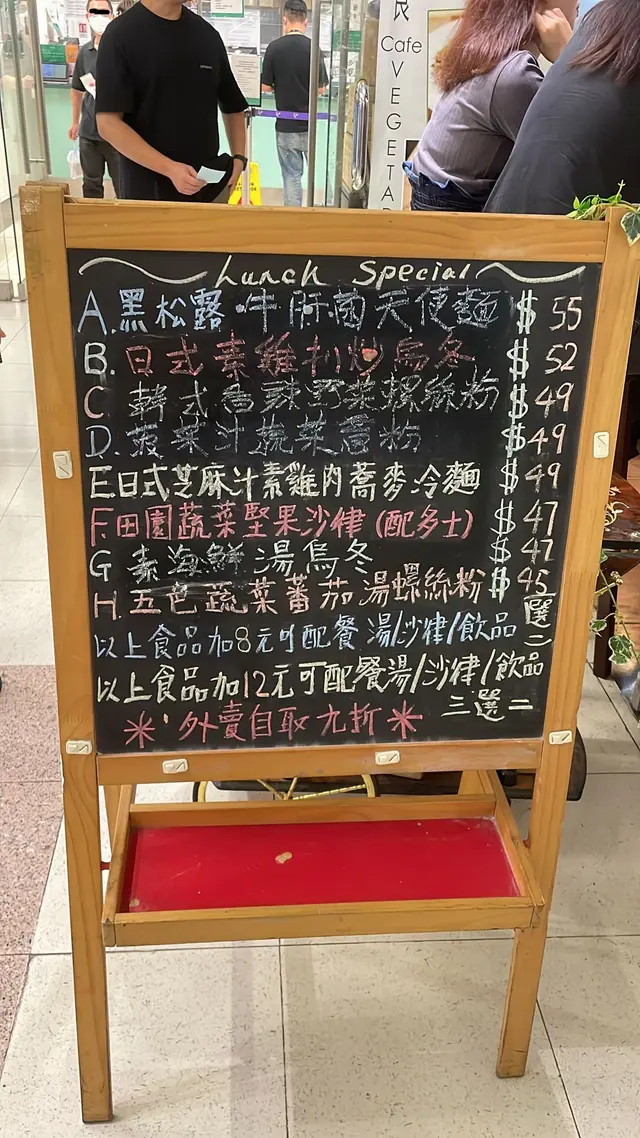 良
Cafe
VEGETA
Lunch Special
A. 黑松露牛肝菌天使麵 $55
B. 日式素雞扒炒烏冬 $52
C 韓式香辣野菜螺絲粉 $49
D. 菠菜汁蔬菜蒿粉 $49
E. 日式芝麻汁素雞肉蕎麥冷麵 $49
F. 田園蔬菜堅果沙律 (配多士) $47
G 素海鮮湯烏冬 $47
H. 五色蔬菜蕃茄湯螺絲粉 $45
以上食品加8元可配餐湯/沙律/飲品 選二
以上食品加12元可配餐湯/沙律/飲品
三選二
＊外賣自取九折＊